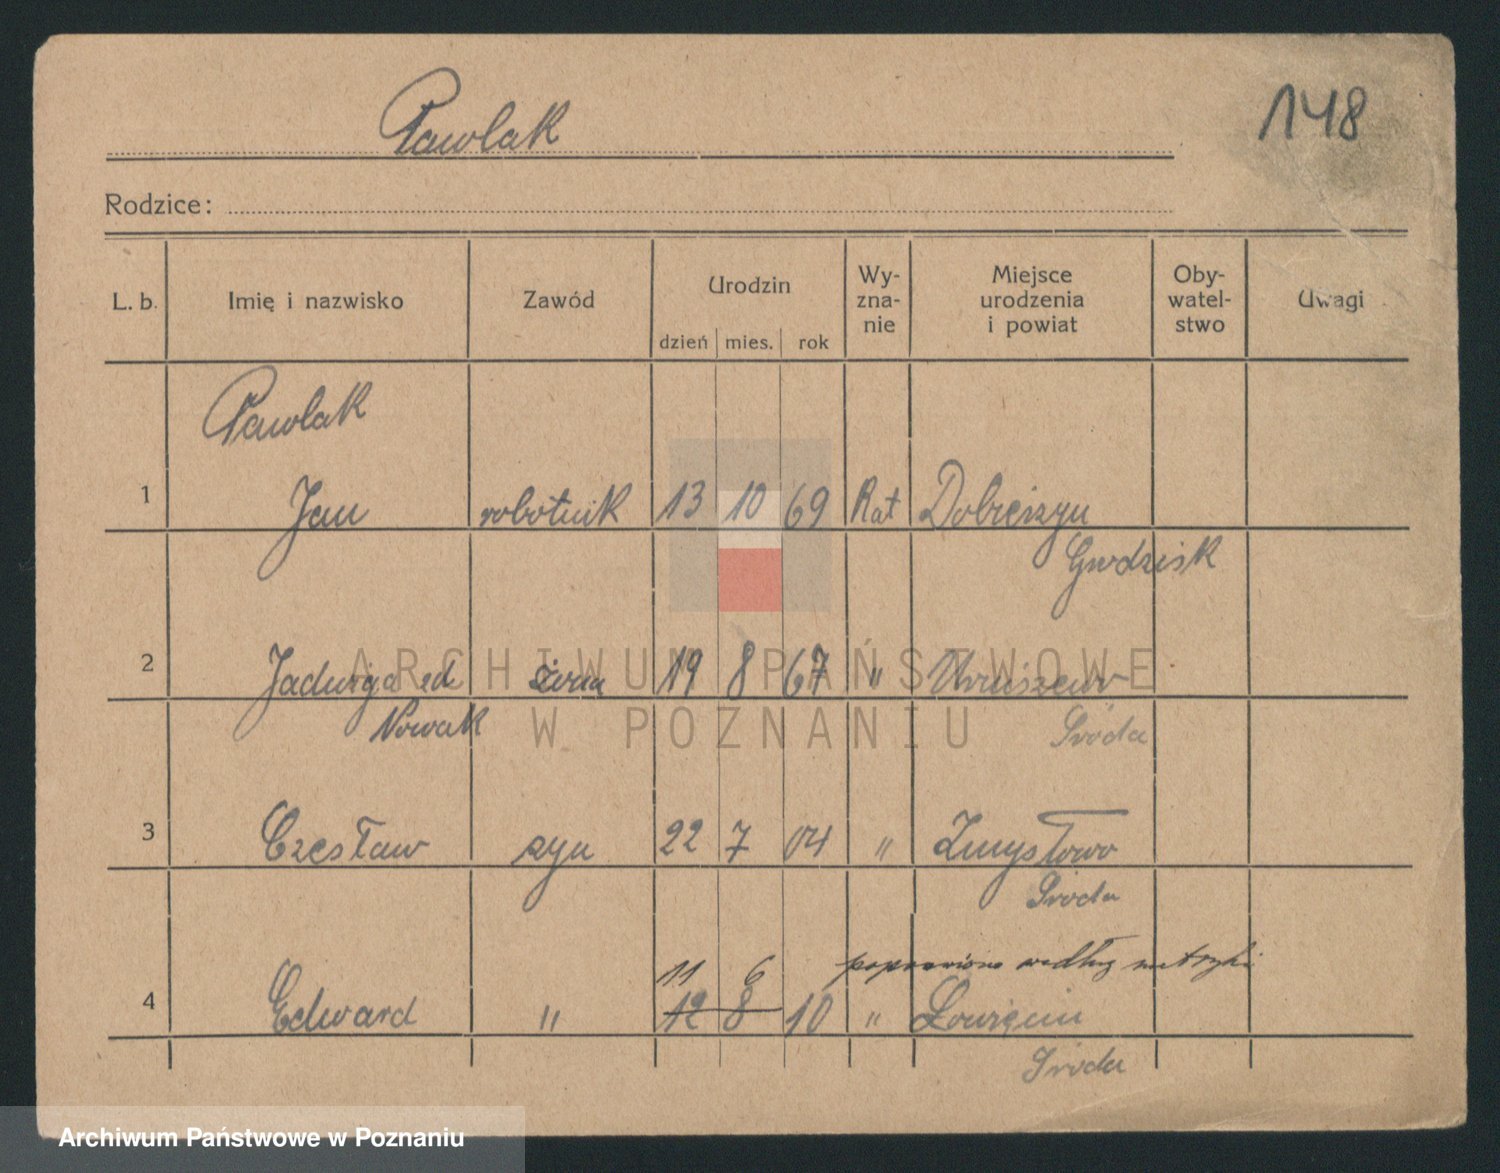 Pawlak
148
Rodzice:
L. b. Imię i nazwisko Zawód Urodzin dzień mies. rok Wy-zna-nie Miejsce urodzenia i powiat Oby-watel-stwo Uwagi
Pawlak
1 Jan robotnik 13 10 69 Rat Dobieżyn
Grodzisk
2 Jadwiga żona 19 8 67 "
Nowak Środa
3 Czesław syn 22 7 04 " Zmysłowo
Środa
11 6 poprawiono według metryki
4 Edward " 12 8 10 "
Środa
ARCHIWUM PAŃSTWOWE
W POZNANIU
Archiwum Państwowe w Poznaniu